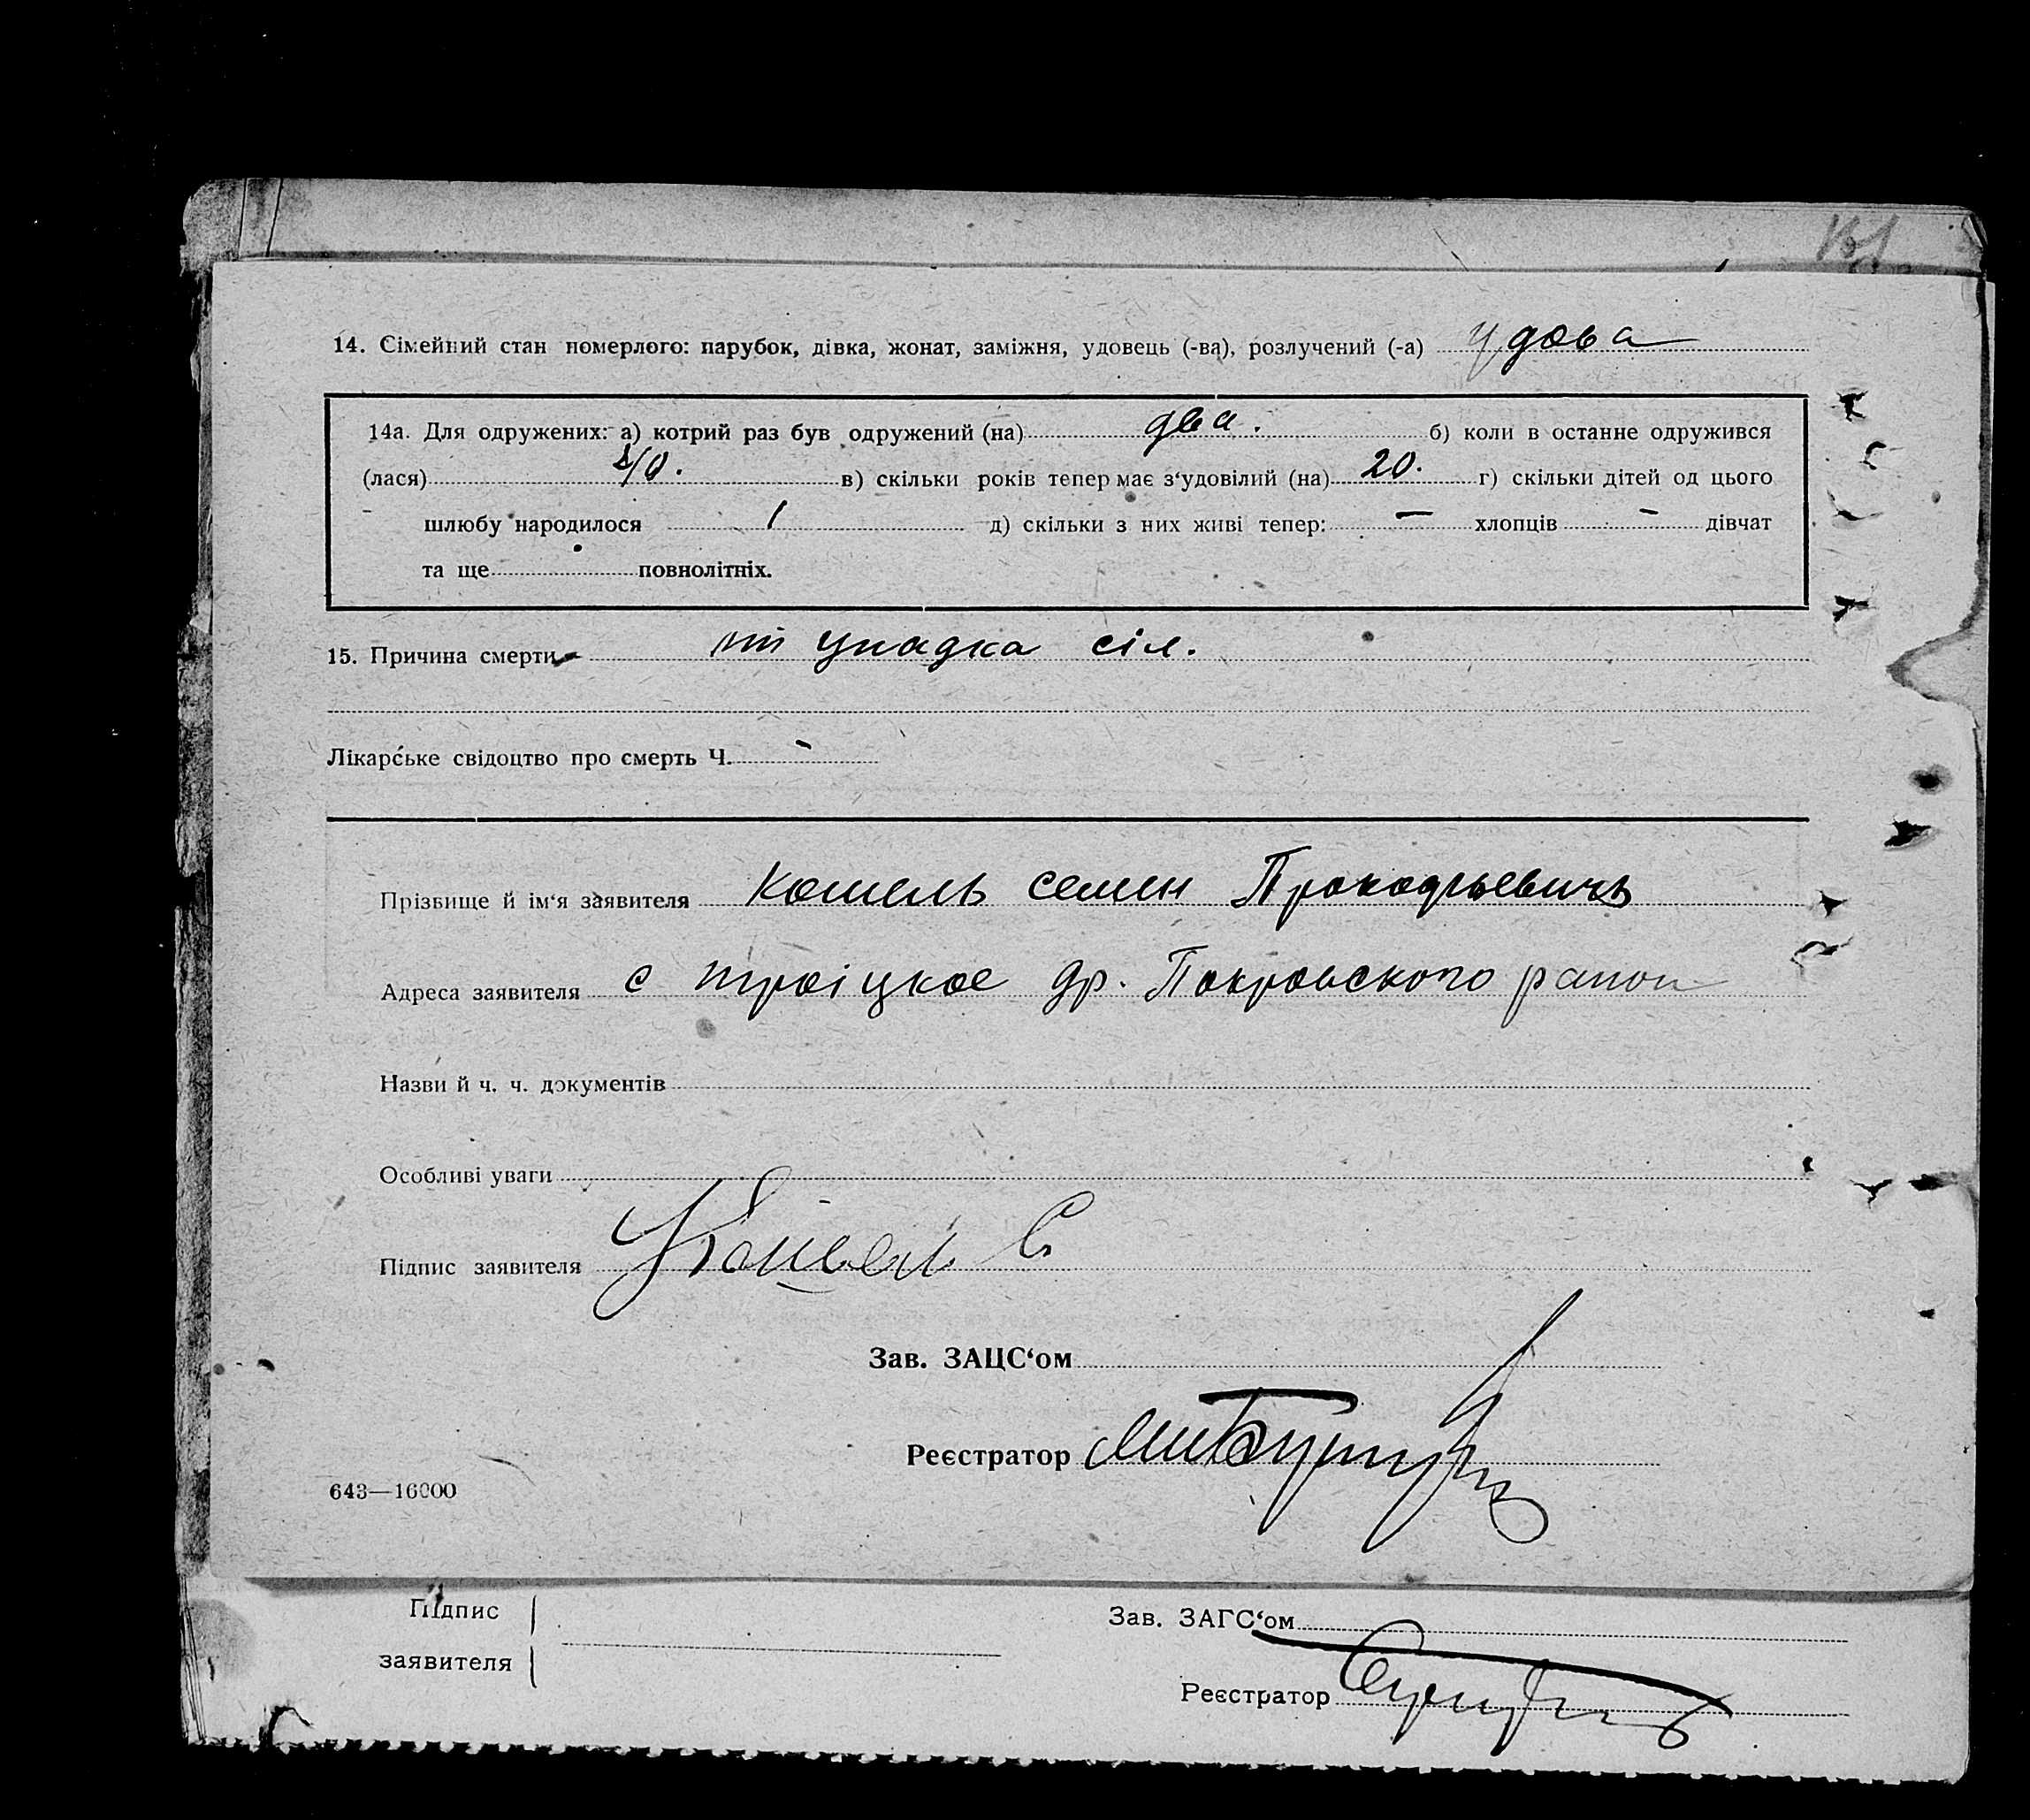 14. Сімейний стан померлого: парубок, дівка, жонат, заміжня, удовець (-ва), розлучений (-а) удова
14а. Для одружених: а) котрий раз був одружений (на) два. б) коли в останне одружився
(лася) в) скільки років тепер має з‘удовілий (на) 20. г) скільки дітей од цього
шлюбу народилося 1 д) скільки з них живі тепер: — хлопців - дівчат
та ще повнолітніх.
15. Причина смерти от упадка сіл.
Лікарське свідоцтво про смерть Ч. -
Прізвище й ім‘я заявителя Кошель Семен Прокофьевичь
Адреса заявителя с Троіцкое др. Покровского район
Назви й ч. ч. документів
Особливі уваги
Підпис заявителя Кошель С
Зав. ЗАЦС‘ом
Реєстратор
643—16000
Підпис
Зав. ЗАГС‘ом
заявителя
Реєстратор